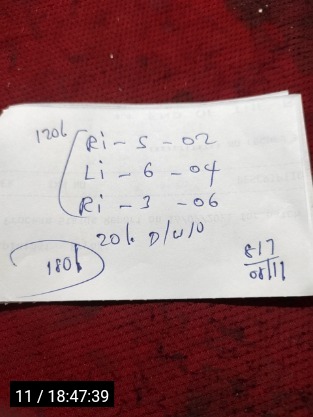 120/
Ri - 5 - 02
Li - 6 - 04
Ri - 3 - 06
20/ D/W/O
180/
817
08/11
11 / 18:47:39